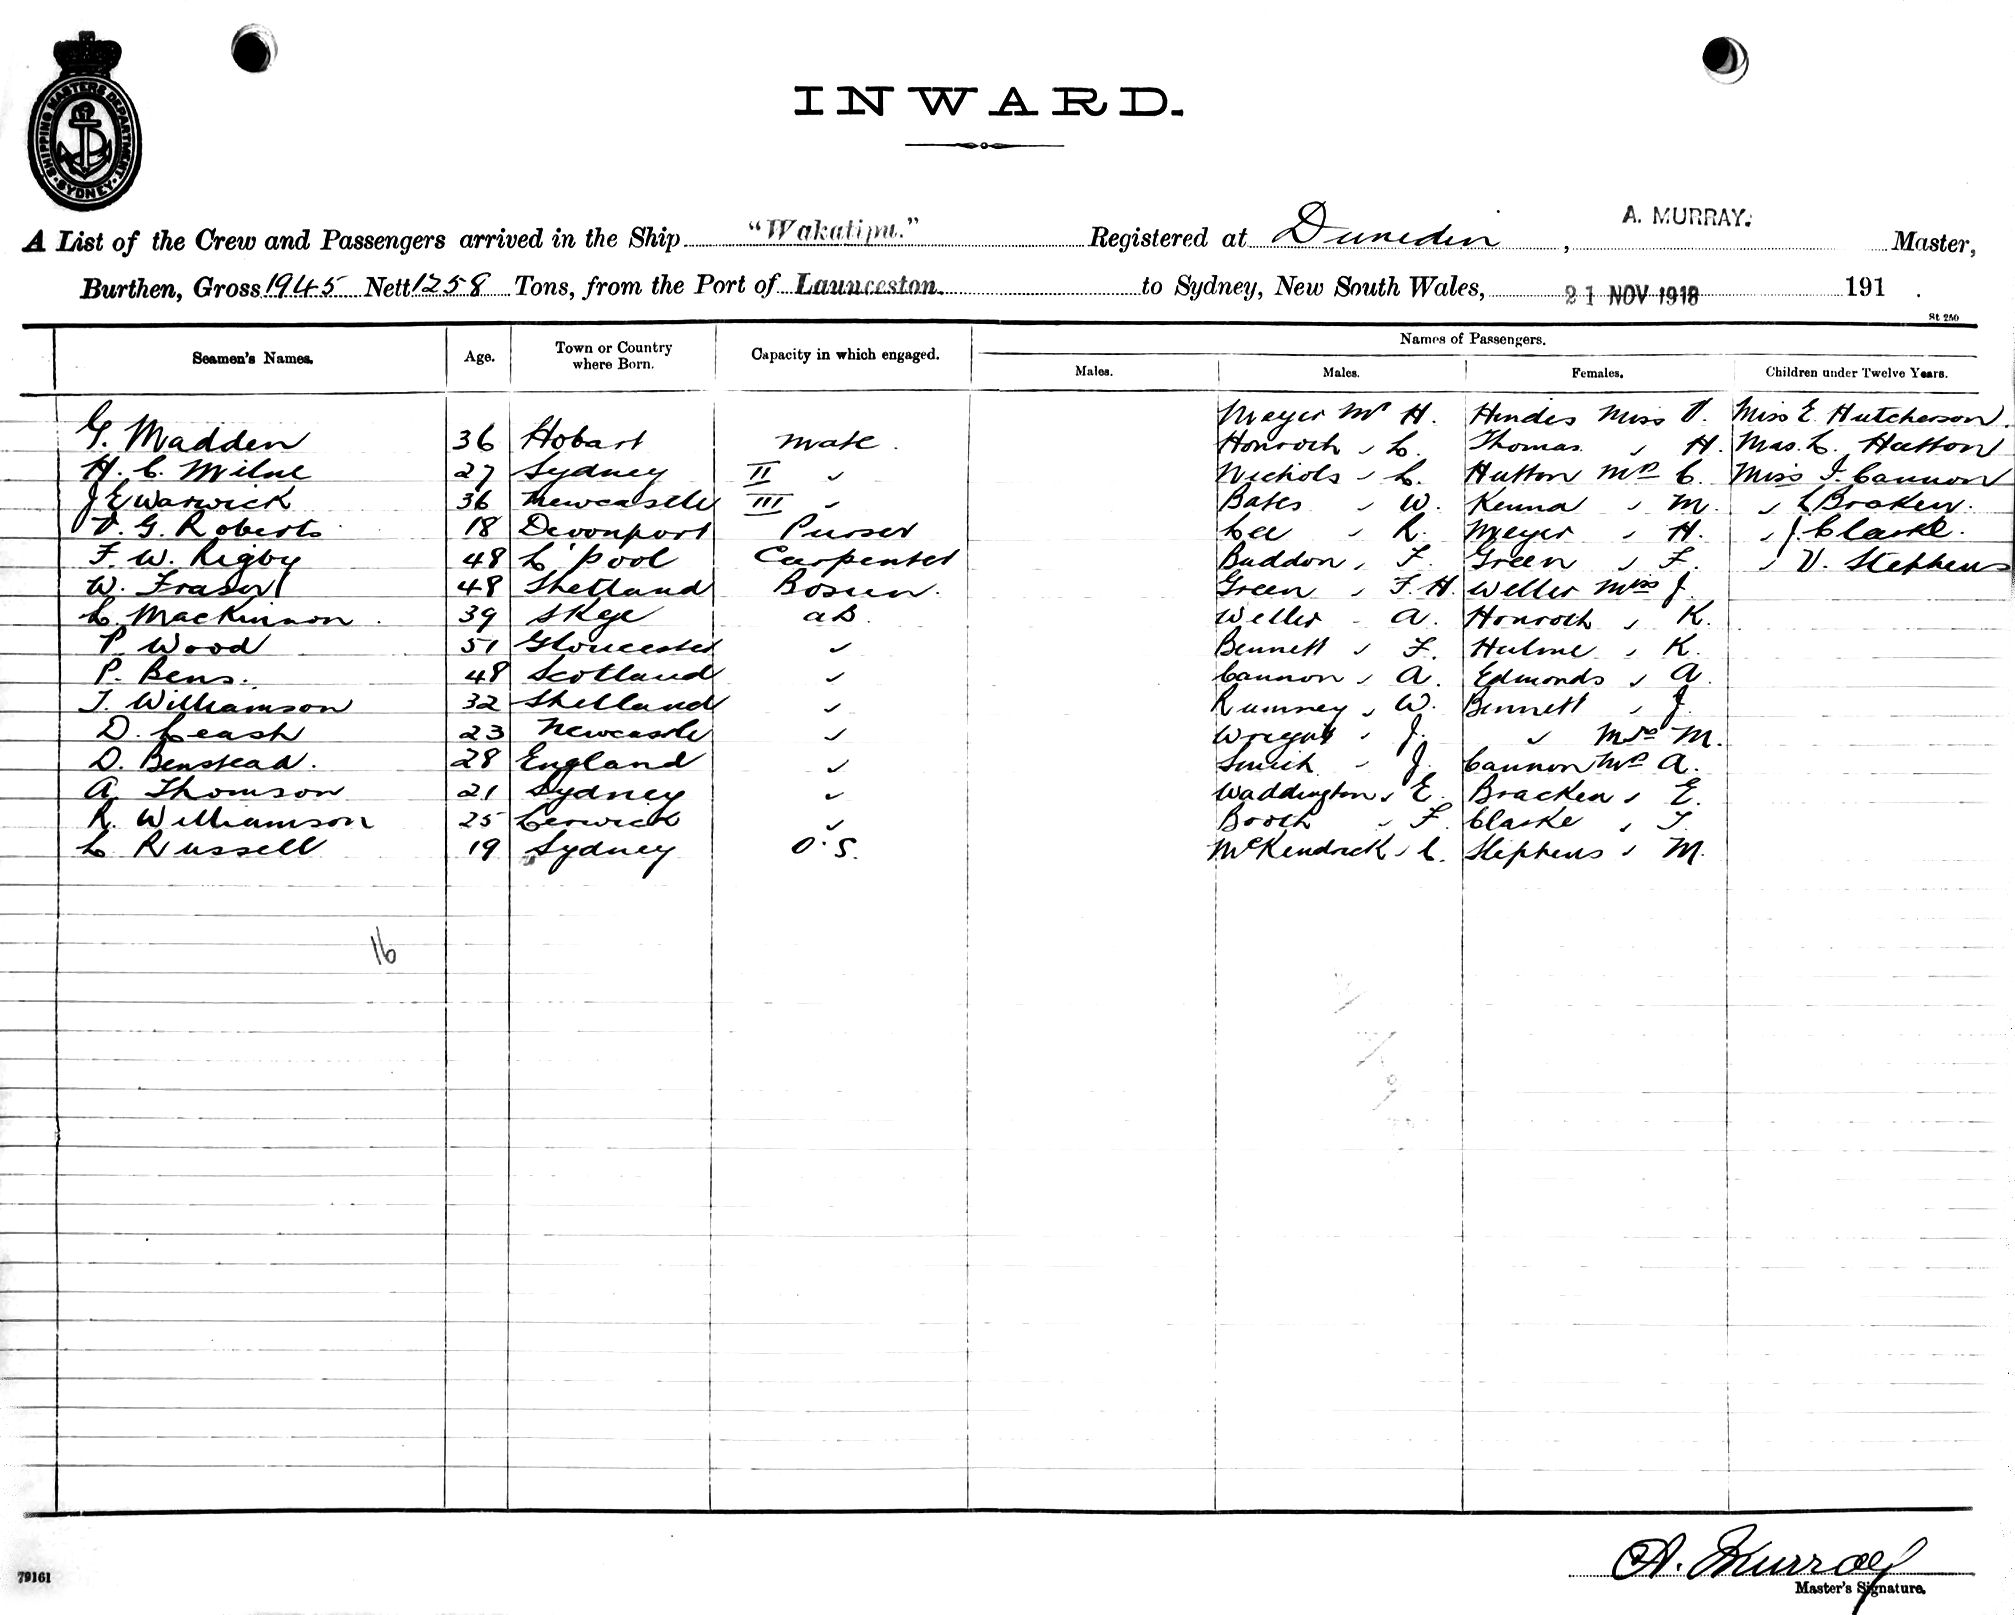 SHIPPING MASTERS DEPARTMENT
SYDNEY
INWARD.
A List of the Crew and Passengers arrived in the Ship "Wakatipu." Registered at Dunedin, A. MURRAY. Master,
Burthen, Gross 1945 Nett 1258 Tons, from the Port of Launceston. to Sydney, New South Wales, 21 NOV 1918 191 .
St. 250
Names of Passengers.
Seamen's Names. Age. Town or Country where Born. Capacity in which engaged. Males. Males. Females. Children under Twelve Years.
Meyer Mr H. Hindes Miss V. Miss E Hutcherson.
G. Madden 36 Hobart Mate. Honroth " L. Thomas " H. Mas. L. Hutton
H. C. Milne 27 Sydney II " Nichols " L. Hutton Mrs C. Miss I. Cannon
J E Warwick 36 Newcastle III " Bates " W. Kenna " M. " L Braken.
V. G. Roberts 18 Devonport Purser Lee " R. Meyer " H. " J. Clarke.
F. W. Rigby 48 L'pool Carpenter Buddon " F. Green " F. " V. Stephens
W. Fraser 48 Shetland Bosun. Green " F. H. Weller Miss J.
L. MacKinnon. 39 Skye AB. Weller " A. Honroth " K.
P. Wood 51 Gloucester " Bennett " F. Hulme " K.
P. Bens. 48 Scotland " Cannon " A. Edmonds " A.
T. Williamson 32 Shetland " Rumney " W. Bennett " J.
D. Leash 23 Newcastle " Wright " J. " Mrs M.
D. Benstead. 28 England " Smith " J. Cannon Mrs A.
A. Thomson 21 Sydney " Waddington " E. Bracken " E.
R. Williamson 25 Lerwick " Booth " F. Clarke " T.
L Russell 19 Sydney O.S. McKendrick " C. Stephens " M.
16
A. Murray
Master's Signature.
79161